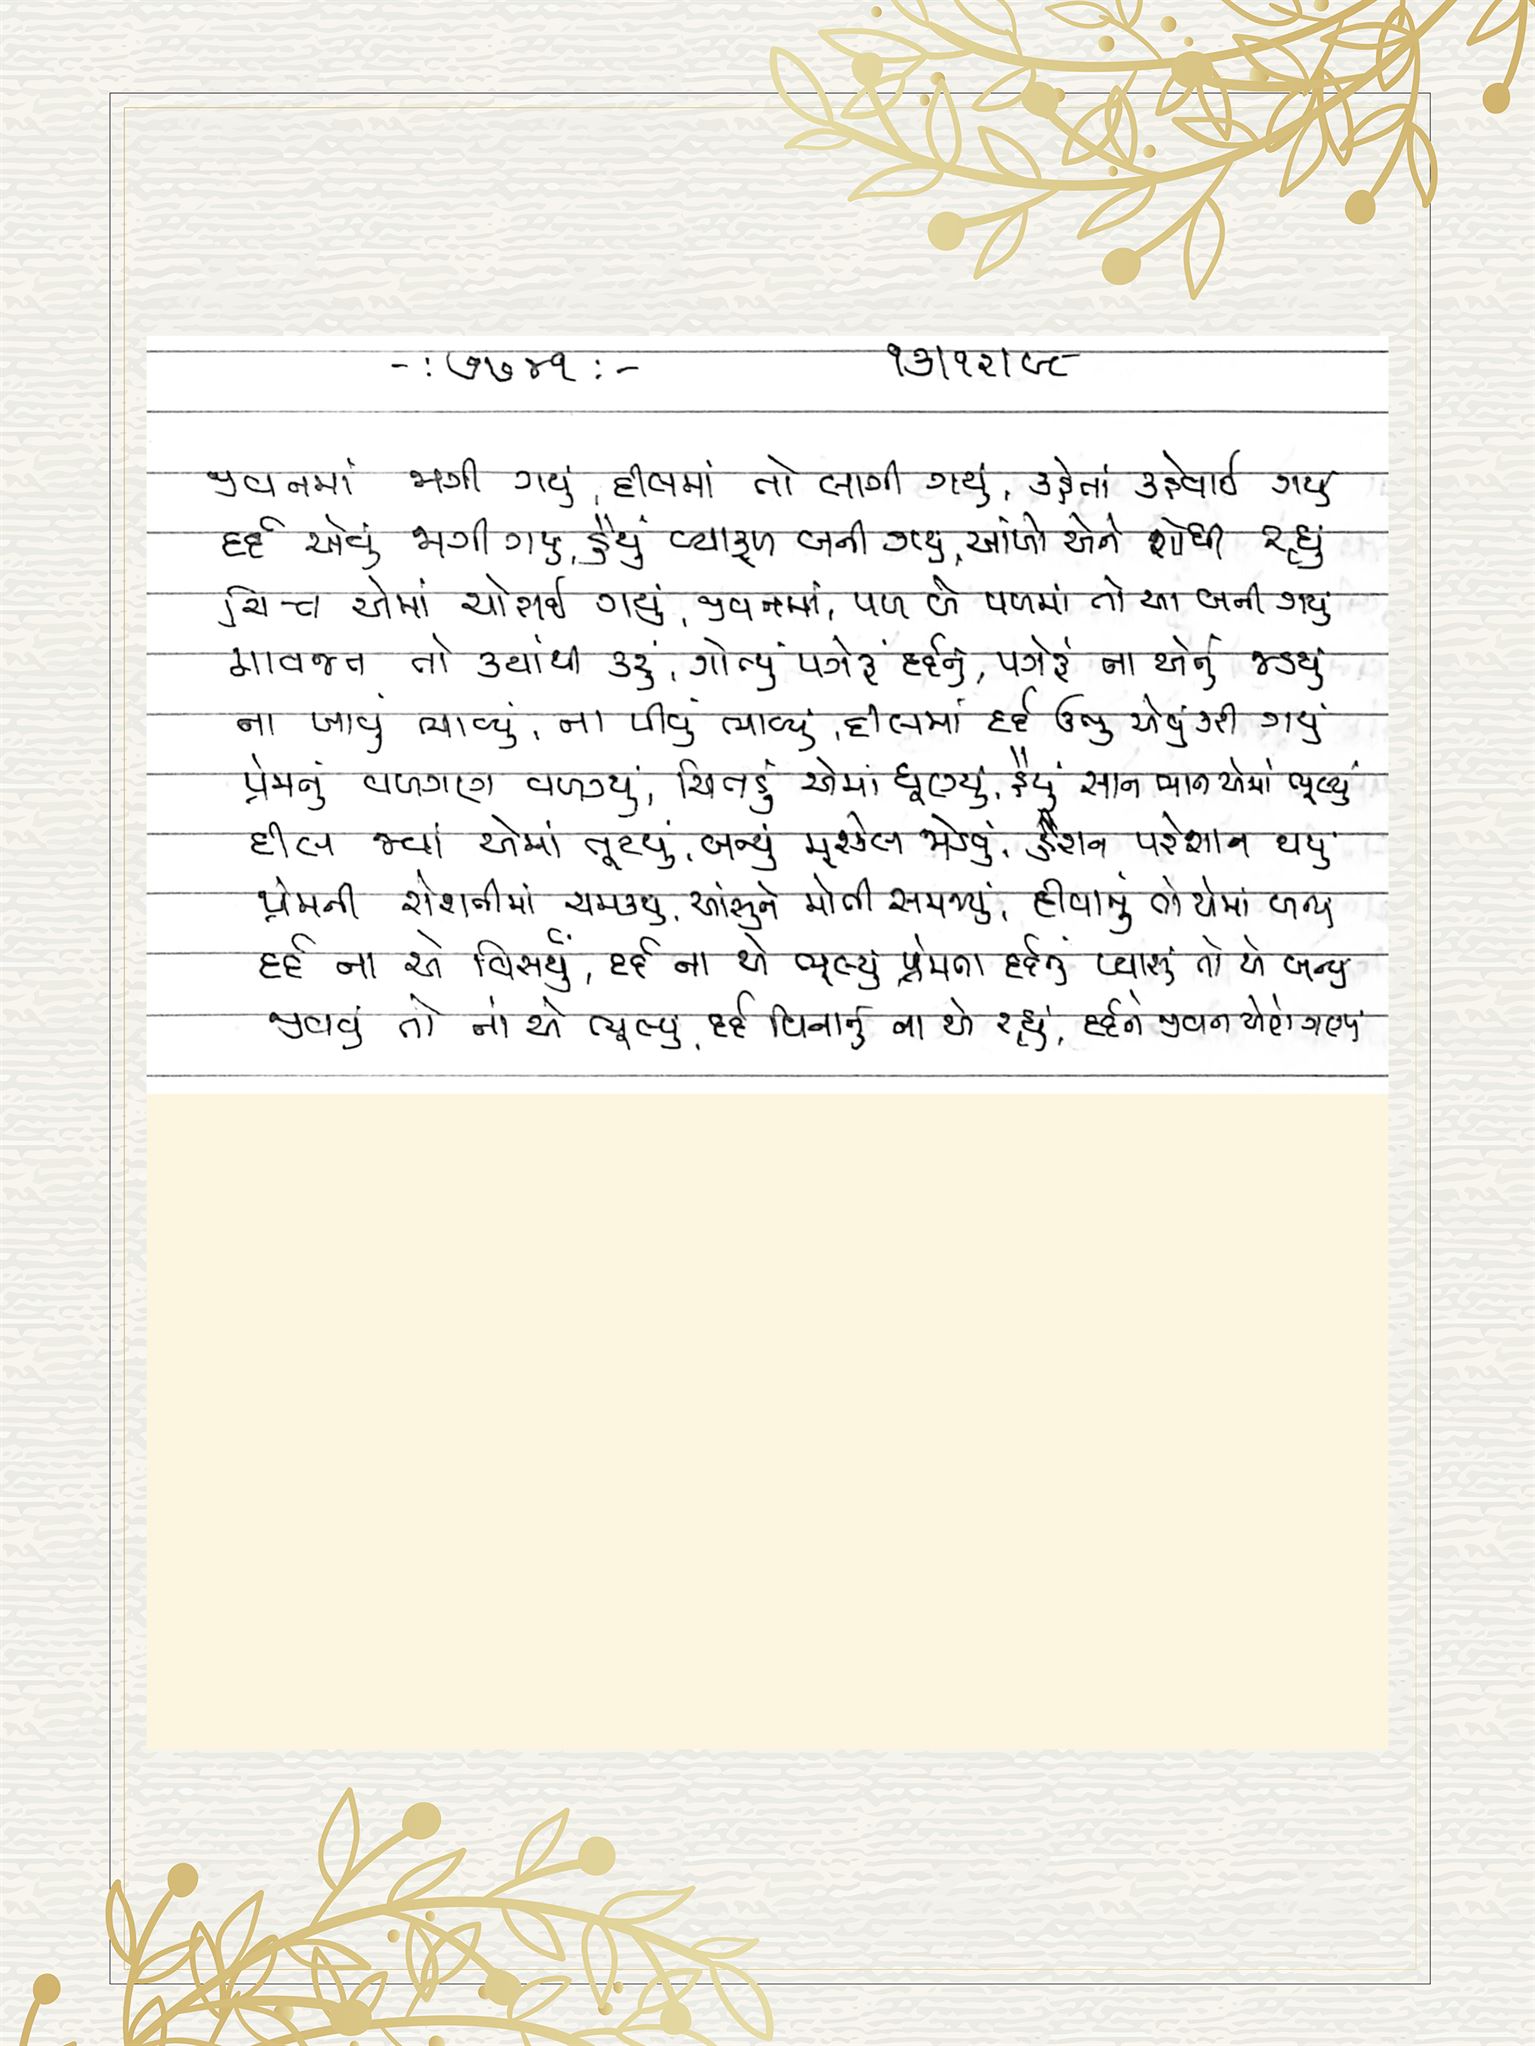 -: ૭૭૪૧ :- ૧૩/૧૨/૯૮
જીવનમાં જાગી ગયું, દીલમાં તો લાગી ગયું, કહેતાં કહેવાઈ ગયું
દર્દ એવું જાગી ગયું, હૈયું વ્યાકૂળ બની ગયું, આંખો એને શોધી રહ્યું
ચિત્ત એમાં ચોરાઈ ગયું, જીવનમાં, પળ બે પળમાં તો આ બની ગયું
માવજત તો ક્યાંથી કરું, ગોત્યું પગેરું દર્દનું, પગેરું ના એનું જડયું
ના ખાવું ભાવ્યું, ના પીવું ભાવ્યું, દીલમાં દર્દ ઉભુ એવું કરી ગયું
પ્રેમનું વળગણ વળગ્યું, ચિતડું એમાં ધૂણ્યું, હૈયું સાન ભાન એમાં ભૂલ્યું
દીલ જ્યાં એમાં તૂટયું, બન્યું મૂશ્કેલ જોડવું, હૈરાન પરેશાન થયું
પ્રેમની રોશનીમાં ચમક્યુ, આંસુને મોતી સમજ્યું, દીવાનું તો એમાં બન્યું
દર્દ ના એ વિસર્યું, દર્દ ના એ ભૂલ્યું પ્રેમના દર્દનું પ્યાસું તો એ બન્યુ
જીવવું તો ના એ ભૂલ્યુ, દર્દ વિનાનું ના એ રહ્યું, દર્દને જીવન એણે ગણ્યું